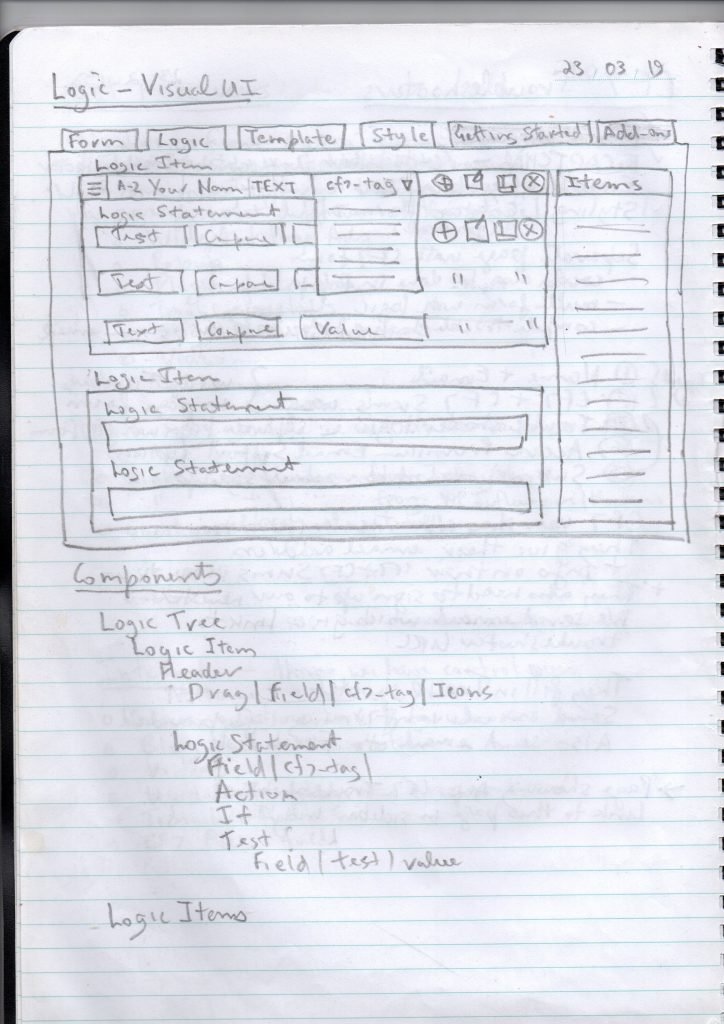 23.03.19
Logic - Visual UI
Form Logic Template Style Getting Started Add-ons
Logic Item
A-Z Your Nam TEXT cf7-tag Items
Logic Statement
Test Compare
Test Compare " "
Text Compare Value " "
Logic Item
Logic Statement
Logic Statement
Components
Logic Tree
Logic Item
Header
Drag | Field | cf7-tag | Icons
Logic Statement
Field | cf7-tag |
Action
If
Test
Field | test | value
Logic Items